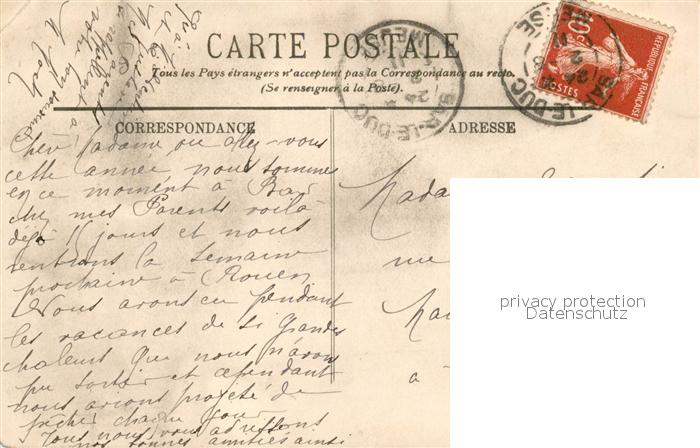 CARTE POSTALE
Tous les Pays étrangers n'acceptent pas la Correspondance au recto.
(Se renseigner à la Poste).
CORRESPONDANCE
ADRESSE
REPUBLIQUE FRANÇAISE
10c
POSTES
BAR-LE-DUC
MEUSE
BAR-LE-DUC
MEUSE
Chère Madame ou allez-vous
cette année nous sommes
en ce moment à Bar
chez mes Parents voilà
déjà 15 jours et nous
rentrons la semaine
prochaine à Rouen
Nous avons eu pendant
les vacances de si grandes
chaleurs que nous n'avons
pu sortir et cependant
nous avions projeté de
pêcher chaque jour
Tous nous vous adressons
nos bonnes amitiés ainsi
Mada
rue
à
privacy protection
Datenschutz